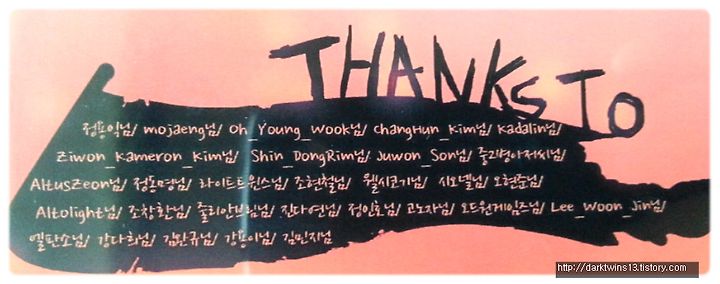 THANKS TO
정용익님/ mojaeng님/ Oh_Young_Wook님/ ChangHun_Kim님/ Kadalin님/
Ziwon_Kameron_Kim님/ Shin_DongRim님/ Juwon_Son님/ 줄2병아저씨님/
AltusZeon님/ 정동명님/ 라이트트윈스님/ 조현철님/ 웰시코기님/ 시모넬님/ 오현준님/
Altolight님/ 조창환님/ 줄리안브림님/ 진다연님/ 정인호님/ 고노자님/ 오드원게임즈님/ Lee_Woon_Jin님/
엘판소님/ 강다희님/ 김완규님/ 강용이님/ 김민지님
http://darktwins13.tistory.com